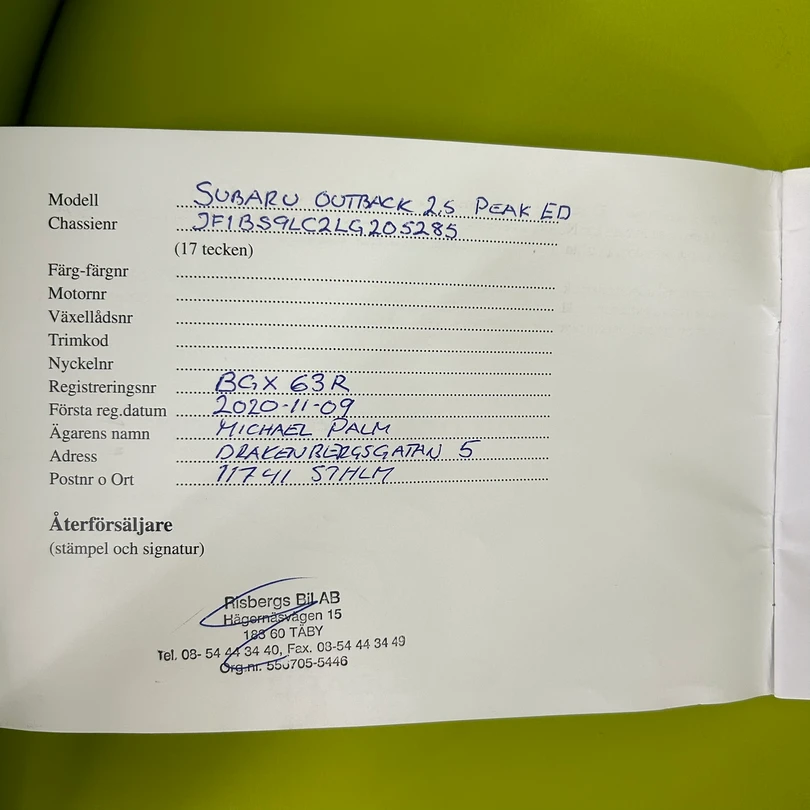 Modell SUBARU OUTBACK 2.5 PEAK ED
Chassienr JF1BS9LC2LG205285
(17 tecken)
Färg-färgnr
Motornr
Växellådsnr
Trimkod
Nyckelnr
Registreringsnr BGX 63R
Första reg.datum 2020-11-09
Ägarens namn MICHAEL PALM
Adress DRAKENBERGSGATAN 5
Postnr o Ort 11741 STHLM
Återförsäljare
(stämpel och signatur)
Risbergs Bil AB
Hägernäsvägen 15
183 60 TÄBY
Tel. 08- 54 44 34 40, Fax. 08-54 44 34 49
Org.nr. 556705-5446